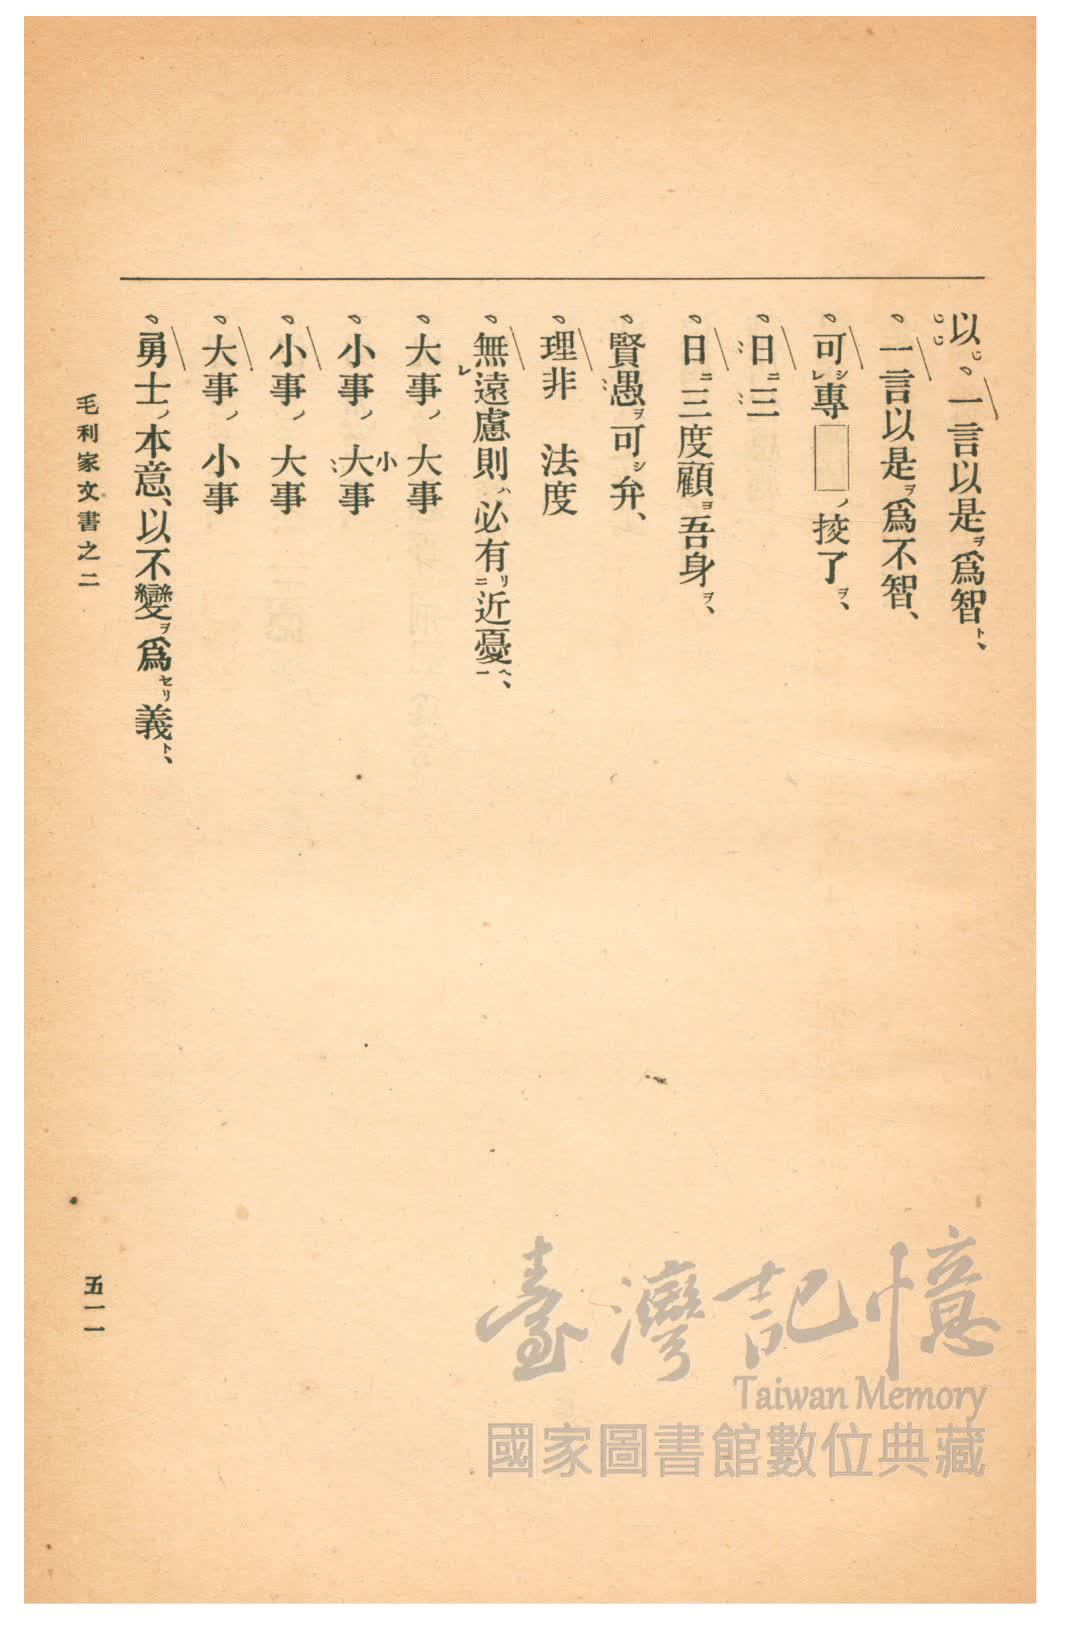 以、一言以是ヲ爲智ト、
一言以是ヲ爲不智、
可シレ專 ノ掟了ヲ、
日ニ三
日ニ三度顧ヨ吾身ヲ、
賢愚ヲ可シ弁、
理非 法度
無レ遠慮則ハ必有リ二近憂一ヘ、
大事ノ大事
小事ノ大事小
小事ノ大事
大事ノ小事
勇士ノ本意、以不變ヲ爲セリ義ト、
毛利家文書之二
五一一
臺灣記憶
Taiwan Memory
國家圖書館數位典藏